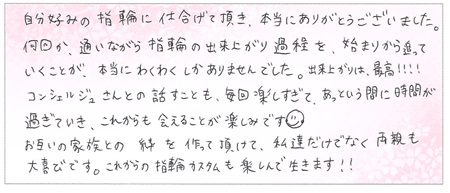 自分好みの指輪に仕合げて頂き、本当にありがとうございました。
何回か、通いながら指輪の出来上がり過程を、始まりから追って
いくことが、本当にわくわくしかありませんでした。出来上がりは、最高!!!!
コンシェルジュさんとの話すことも、毎回楽しすぎて、あっという間に時間が
過ぎていき、これからも会えることが楽しみです
お互いの家族との絆を作って頂けて、私達だけでなく両親も
大喜びです。これからの指輪カスタムも楽しんで生きます!!